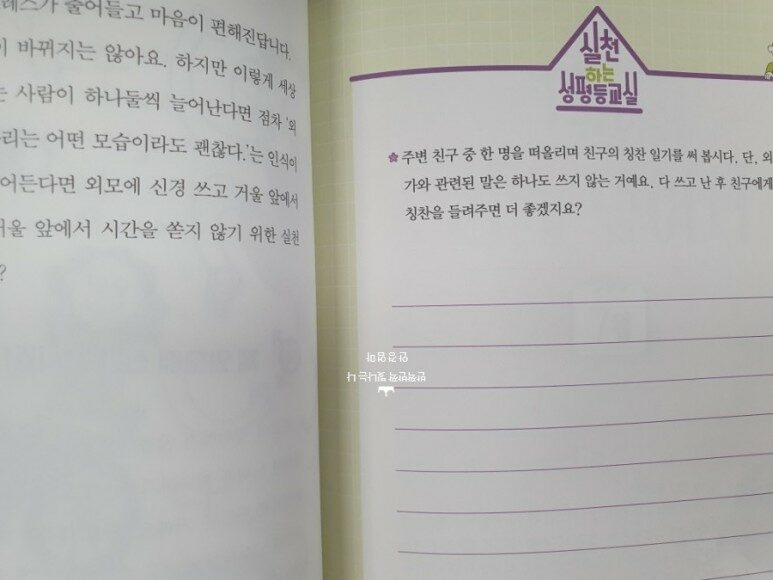 레스가 줄어들고 마음이 편해진답니다.
이 바뀌지는 않아요. 하지만 이렇게 세상
는 사람이 하나둘씩 늘어난다면 점차 '외
우리는 어떤 모습이라도 괜찮다.'는 인식이
어든다면 외모에 신경 쓰고 거울 앞에서
거울 앞에서 시간을 쏟지 않기 위한 실천
?
실천
하는
성평등교실
주변 친구 중 한 명을 떠올리며 친구의 칭찬 일기를 써 봅시다. 단, 외
가와 관련된 말은 하나도 쓰지 않는 거예요. 다 쓰고 난 후 친구에게
칭찬을 들려주면 더 좋겠지요?
반짝반짝 빛나는 나